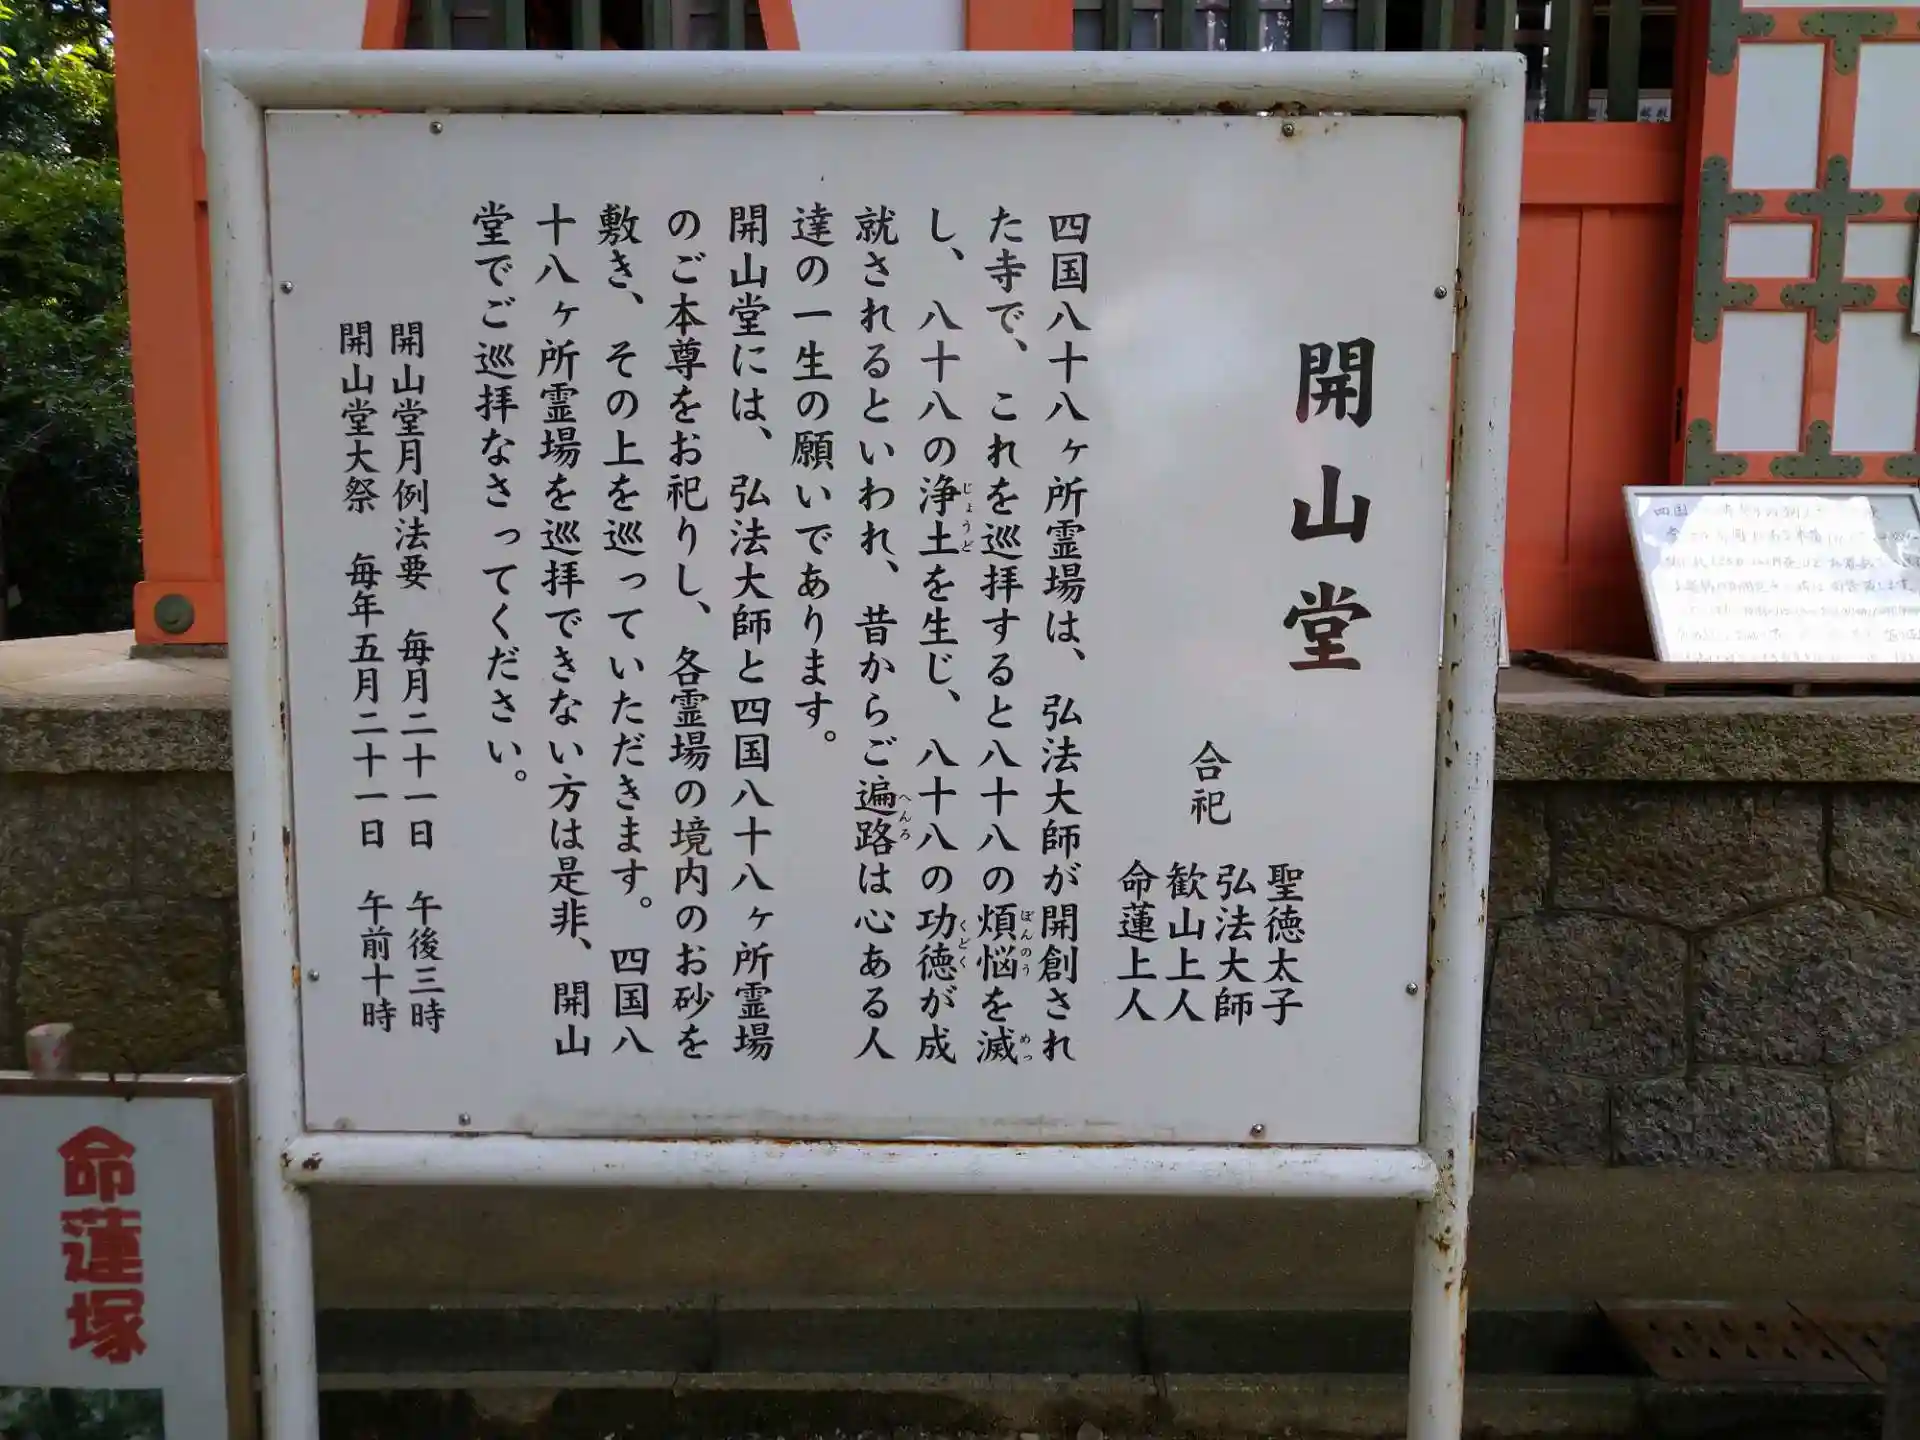 開山堂
合祀
聖徳太子
弘法大師
歓山上人
命蓮上人
四国八十八ヶ所霊場は、弘法大師が開創され
た寺で、これを巡拝すると八十八の煩悩を滅
し、八十八の浄土を生じ、八十八の功徳が成
就されるといわれ、昔からご遍路は心ある人
達の一生の願いであります。
開山堂には、弘法大師と四国八十八ヶ所霊場
のご本尊をお祀りし、各霊場の境内のお砂を
敷き、その上を巡っていただきます。四国八
十八ヶ所霊場を巡拝できない方は是非、開山
堂でご巡拝なさってください。
開山堂月例法要　毎月二十一日　午後三時
開山堂大祭　毎年五月二十一日　午前十時
命蓮塚